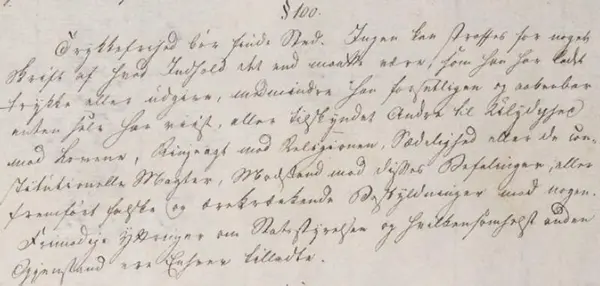 § 100.
Trykkefrihed bør finde Sted. Ingen kan straffes for noget
Skrift af hvad Indhold det end maatte være, som han har ladet
trykke eller udgive, medmindre han forsætligen og aabenbar
enten selv har viist, eller tilskyndet Andre til Ulydighed
mod Lovene, Ringeagt mod Religionen, Sædelighed eller de con-
stitutionelle Magter, Modstand mod disses Befalinger, eller
fremført falske og ærekrækende Beskyldninger mod nogen.
Frimodige Yttringer om Statsstyrelsen og hvilkensomhelst anden
Gjenstand ere Enhver tilladte.